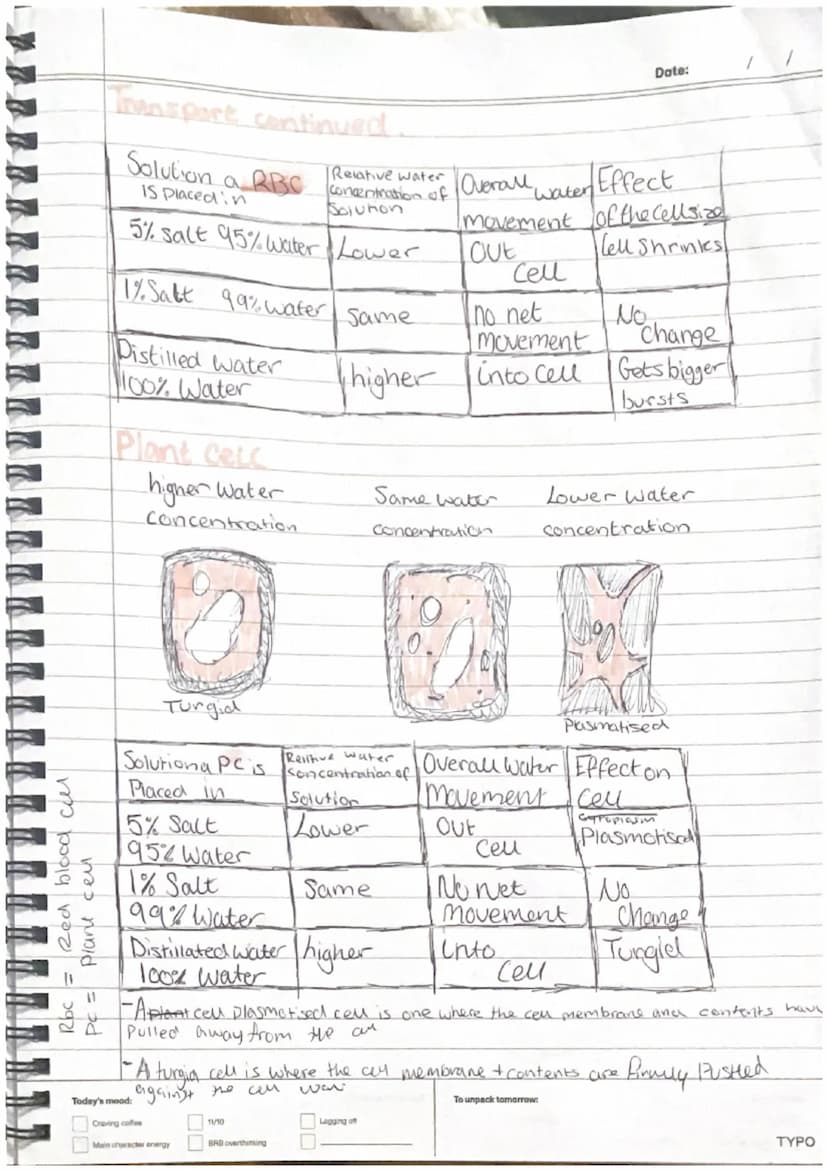 Date: / /
Transport continued.
Solution a RBC is placed in
Relative water concentration of Solution
Overall water movement
Effect of the cell size
5% salt 95% water
Lower
out cell
Cell shrinks
1% Salt 99% water
same
no net movement
No change
Distilled water 100% water
higher
into cell
Gets bigger bursts
Plant cell
higher water concentration
Same water concentration
Lower water concentration
Turgid
Plasmatised
Solution a PC is Placed in
Relitive water concentration of Solution
Overall water Movement
Effect on cell
5% Salt 95% Water
Lower
Out cell
cytoplasm Plasmotised
1% Salt 99% Water
Same
No net movement
No change
Distillated water 100% water
higher
Into cell
Turgid
Rbc = Red blood cell
Pc = Plant cell
- A plant cell plasmotised cell is one where the cell membrane and contents have
pulled away from the
- A turgid cell is where the cell membrane + contents are firmly Pushed
against the cell wall
Today's mood:
Craving coffee
11/10
Lagging off
Main character energy
BRB overthinking
To unpack tomorrow:
TYPO